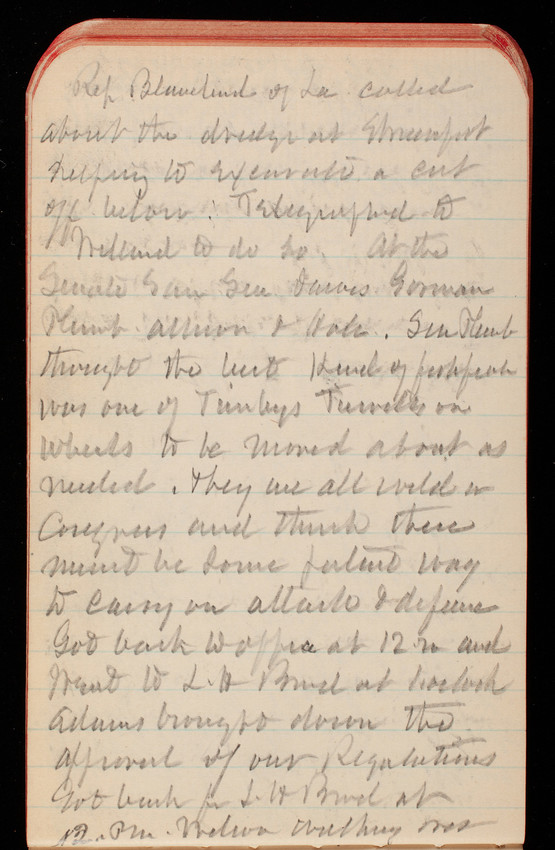 Rep Blanchard of La. called
about the dredge at Shreveport
helping to excavate a cut
off below. Telegraphed to
Willard to do so. At the
Senate Saw Sen Dawes Gorman
Plumb Allison & Hale. Sen Plumb
thought the best kind of
was one of Timbys Turrets on
wheels to be moved about as
needed. They are all wild in
Congress and think there
must be some patent way
to carry on attack & defense
Got back to office at 12 m and
Went to L. H Board at
Adams brought down the
approval of our Regulations
Got back fr L. H Board at
Pm. walking